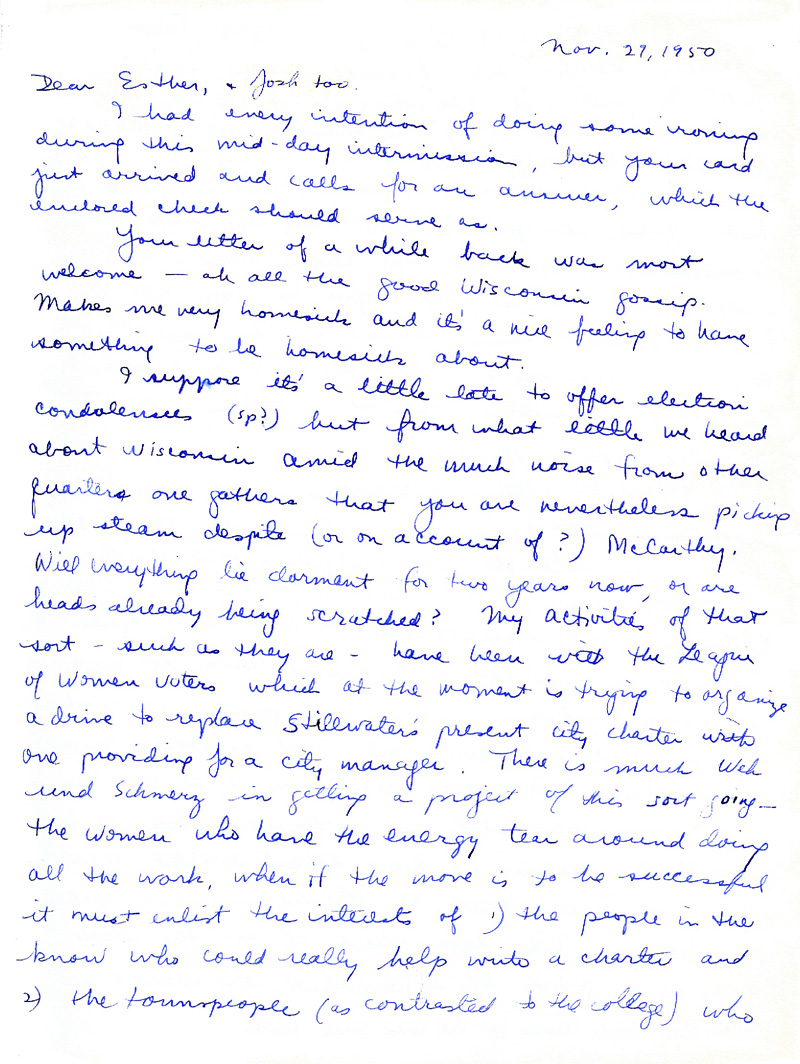 Nov. 27, 1950
Dear Esther, + Josh too.
I had every intention of doing some ironing
during this mid-day intermission, but your card
just arrived and calls for an answer, which the
enclosed check should serve as.
Your letter of a while back was most
welcome — ah all the good Wisconsin gossip.
Makes me very homesick and it's a nice feeling to have
something to be homesick about.
I suppose it's a little late to offer election
condolences (sp?) but from what little we heard
about Wisconsin amid the much noise from other
quarters one gathers that you are nevertheless picking
up steam despite (or on account of?) McCarthy.
Will everything lie dormant for two years now, or are
heads already being scratched? My activities of that
sort - such as they are - have been with the League
of Women Voters which at the moment is trying to organize
a drive to replace Stillwater's present city charter with
one providing for a city manager. There is much Weh
und Schmerz in getting a project of this sort going—
the women who have the energy tear around doing
all the work, when if the move is to be successful
it must enlist the interests of 1) the people in the
know who could really help write a charter and
2) the townspeople (as contrasted to the college) who